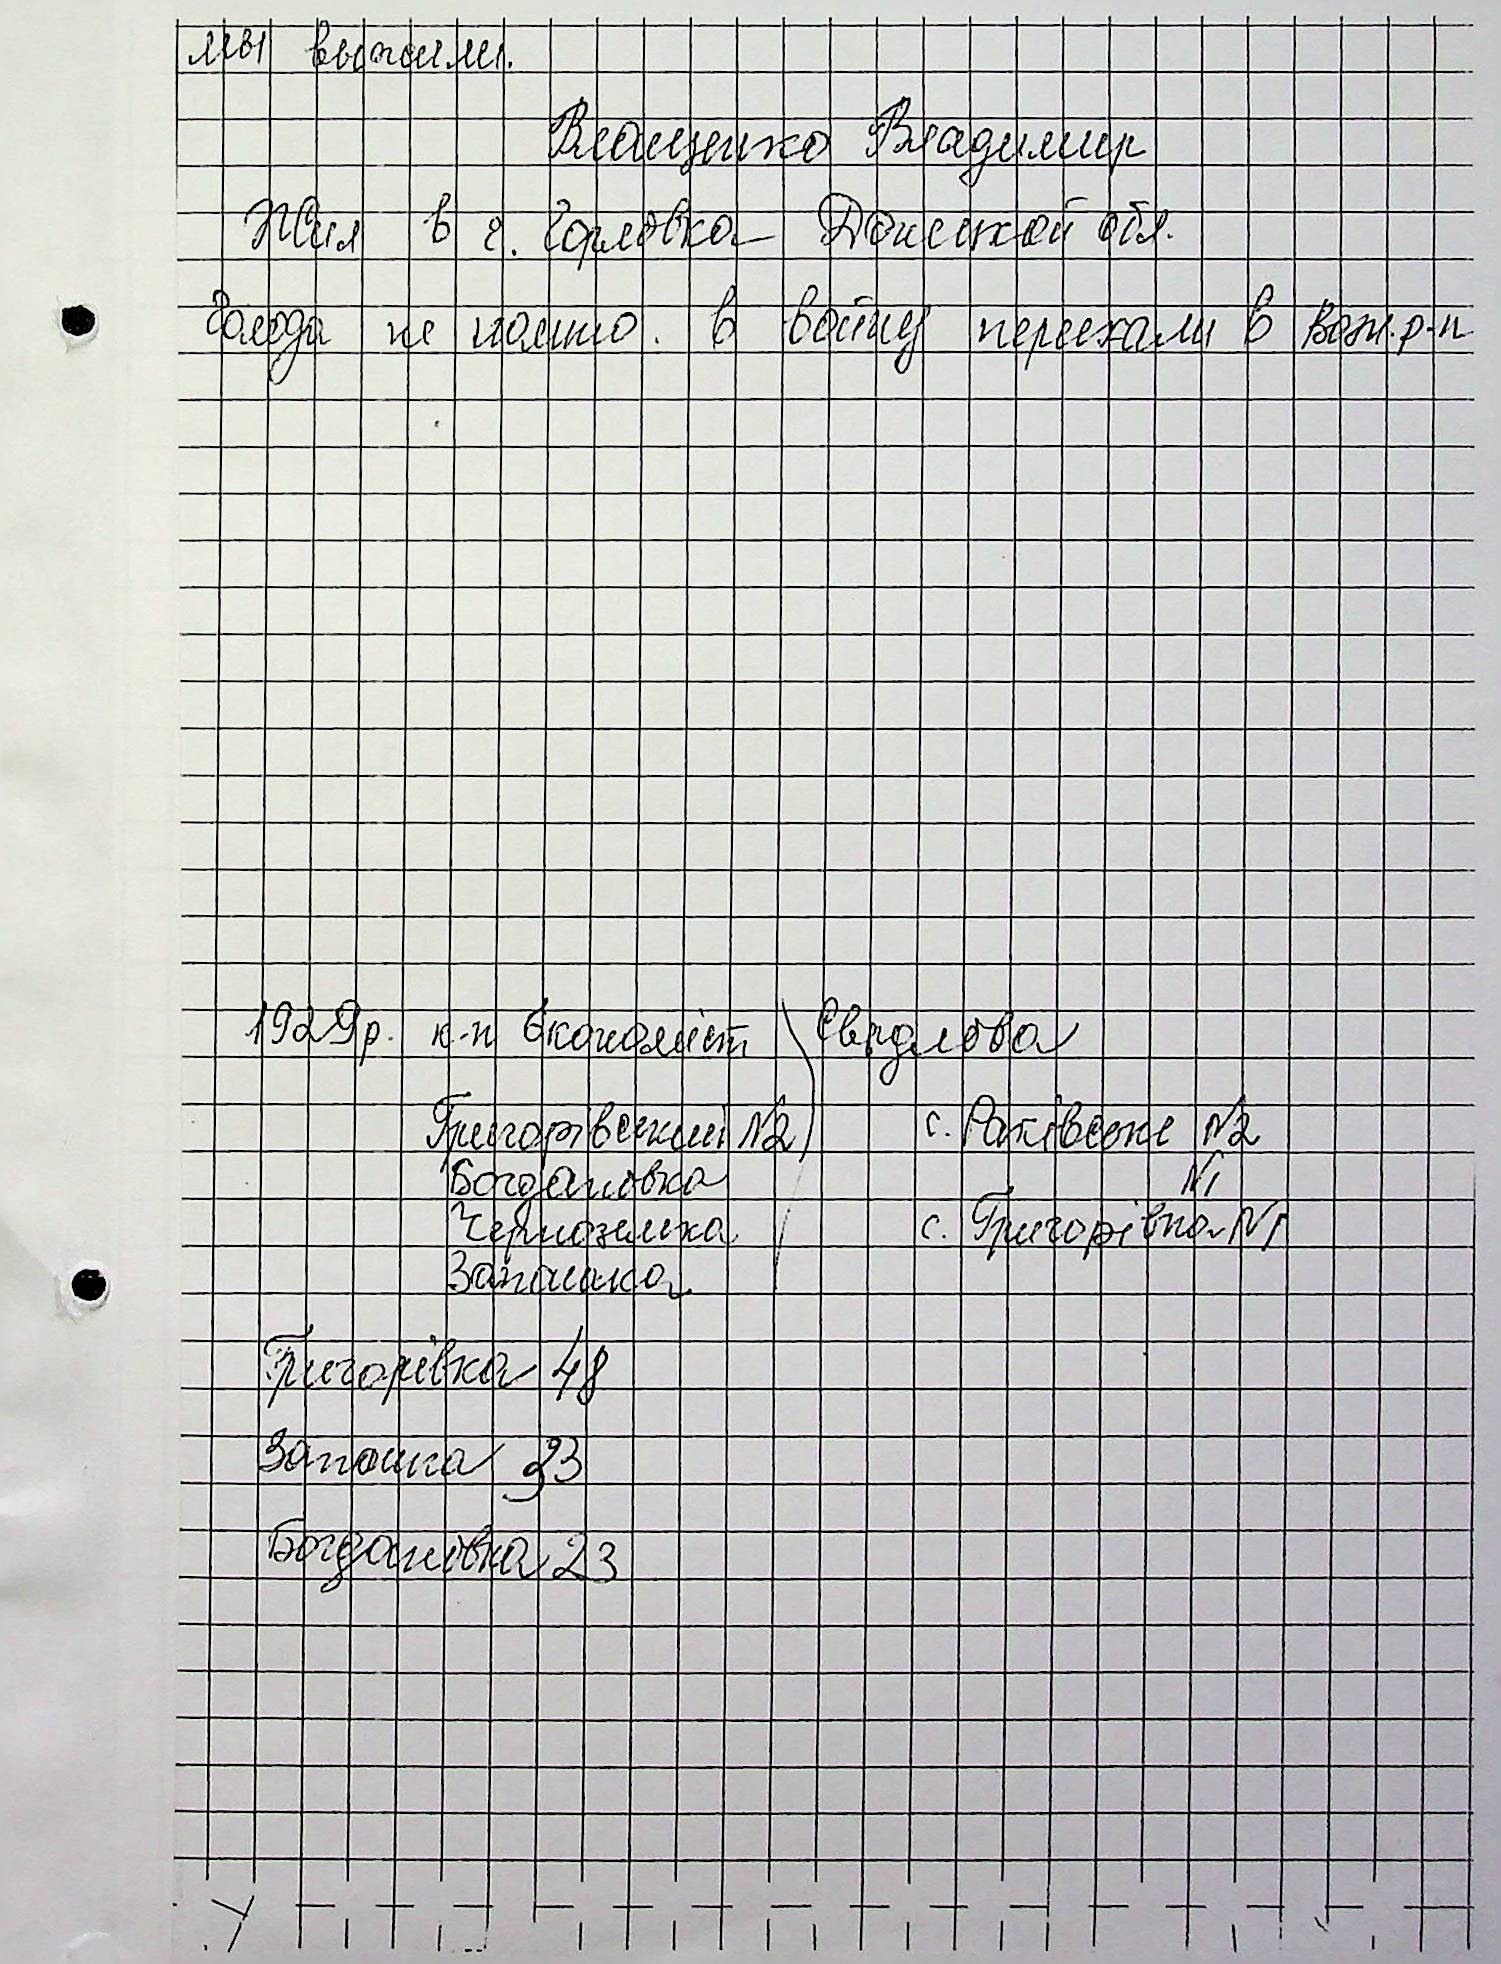 мы выжили.
Власенко Владимир
Жил в г. Горловка Донецкой обл.
Голода не помню. В войну переехали в Вол. р-н
1929р. к-п Економіст Свердлова
Григорівський №2 с. Раківське №2
Богдановка №1
Черноземка с. Григорівка №1
Запашка
Григорівка 48
Запашка 33
Богданівка 23